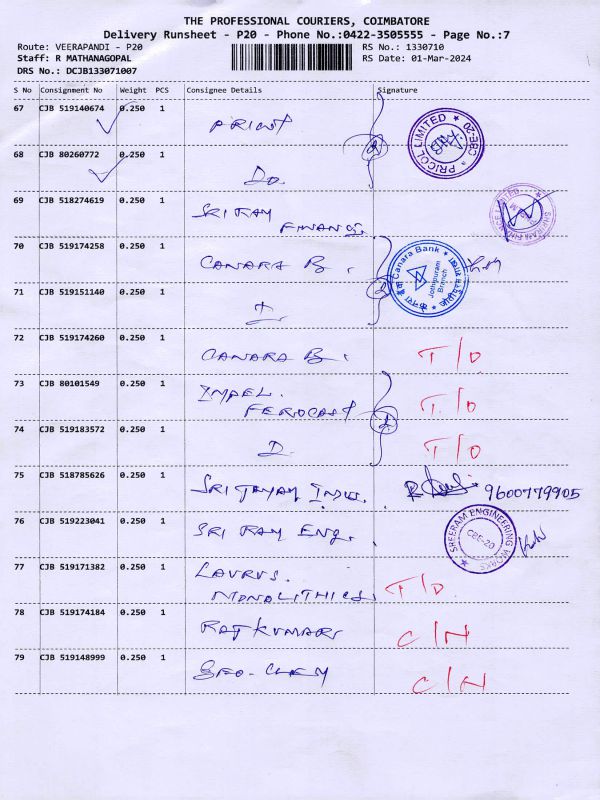 THE PROFESSIONAL COURIERS, COIMBATORE
Delivery Runsheet - P20 - Phone No.:0422-3505555 - Page No.:7
Route: VEERAPANDI - P20
RS No.: 1330710
Staff: R MATHANAGOPAL
RS Date: 01-Mar-2024
DRS No.: DCJB133071007
S No Consignment No Weight PCS Consignee Details Signature
67 CJB 519140674 0.250 1 PRICOL
PRICOL LIMITED ★ CBE-20 ★
68 CJB 80260772 0.250 1 Do.
69 CJB 518274619 0.250 1 SRI RAM
FINANS.
SHRIRAM FINANCE LIMITED
70 CJB 519174258 0.250 1 CANARA B.
Canara Bank
Jothipuram
Branch
केनरा बैंक
71 CJB 519151140 0.250 1
72 CJB 519174260 0.250 1 CANARA B. T/D
73 CJB 80101549 0.250 1 IMPEL.
FEROCAST T/D
74 CJB 519183572 0.250 1 D. T/D
75 CJB 518785626 0.250 1 SRI JAYAM INDU. 9600779905
76 CJB 519223041 0.250 1 SRI RAM ENG.
SREERAM ENGINEERING WORKS
CBE-20
77 CJB 519171382 0.250 1 LAURUS.
MONOLITHICS. T/D
78 CJB 519174184 0.250 1 RAJKUMAR C/N
79 CJB 519148999 0.250 1 GEO-CHEM C/N